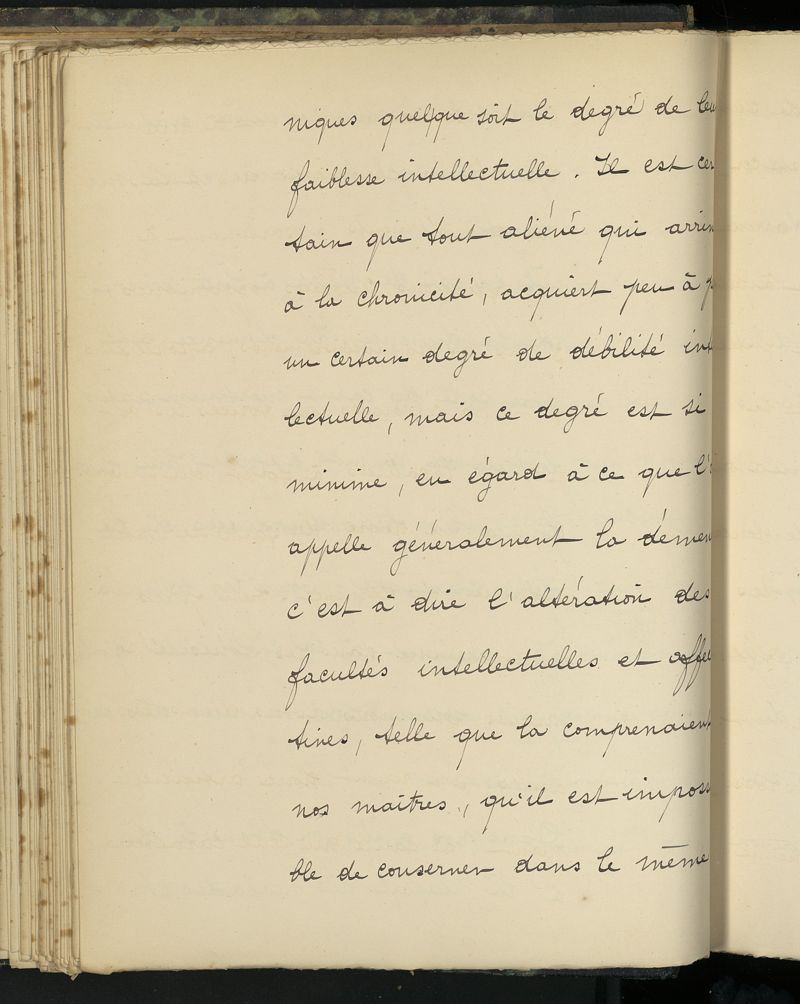 niques quelque soit le degré de leu
faiblesse intellectuelle. Il est cer
tain que tout aliéné qui arriv
à la chronicité, acquiert peu à p
un certain degré de débilité int
lectuelle, mais ce degré est si
minime, eu égard à ce que l'
appelle généralement la démen
c'est à dire l'altération des
facultés intellectuelles et affec
tives, telle que la comprenaient
nos maîtres, qu'il est imposs
ble de conserver dans le même